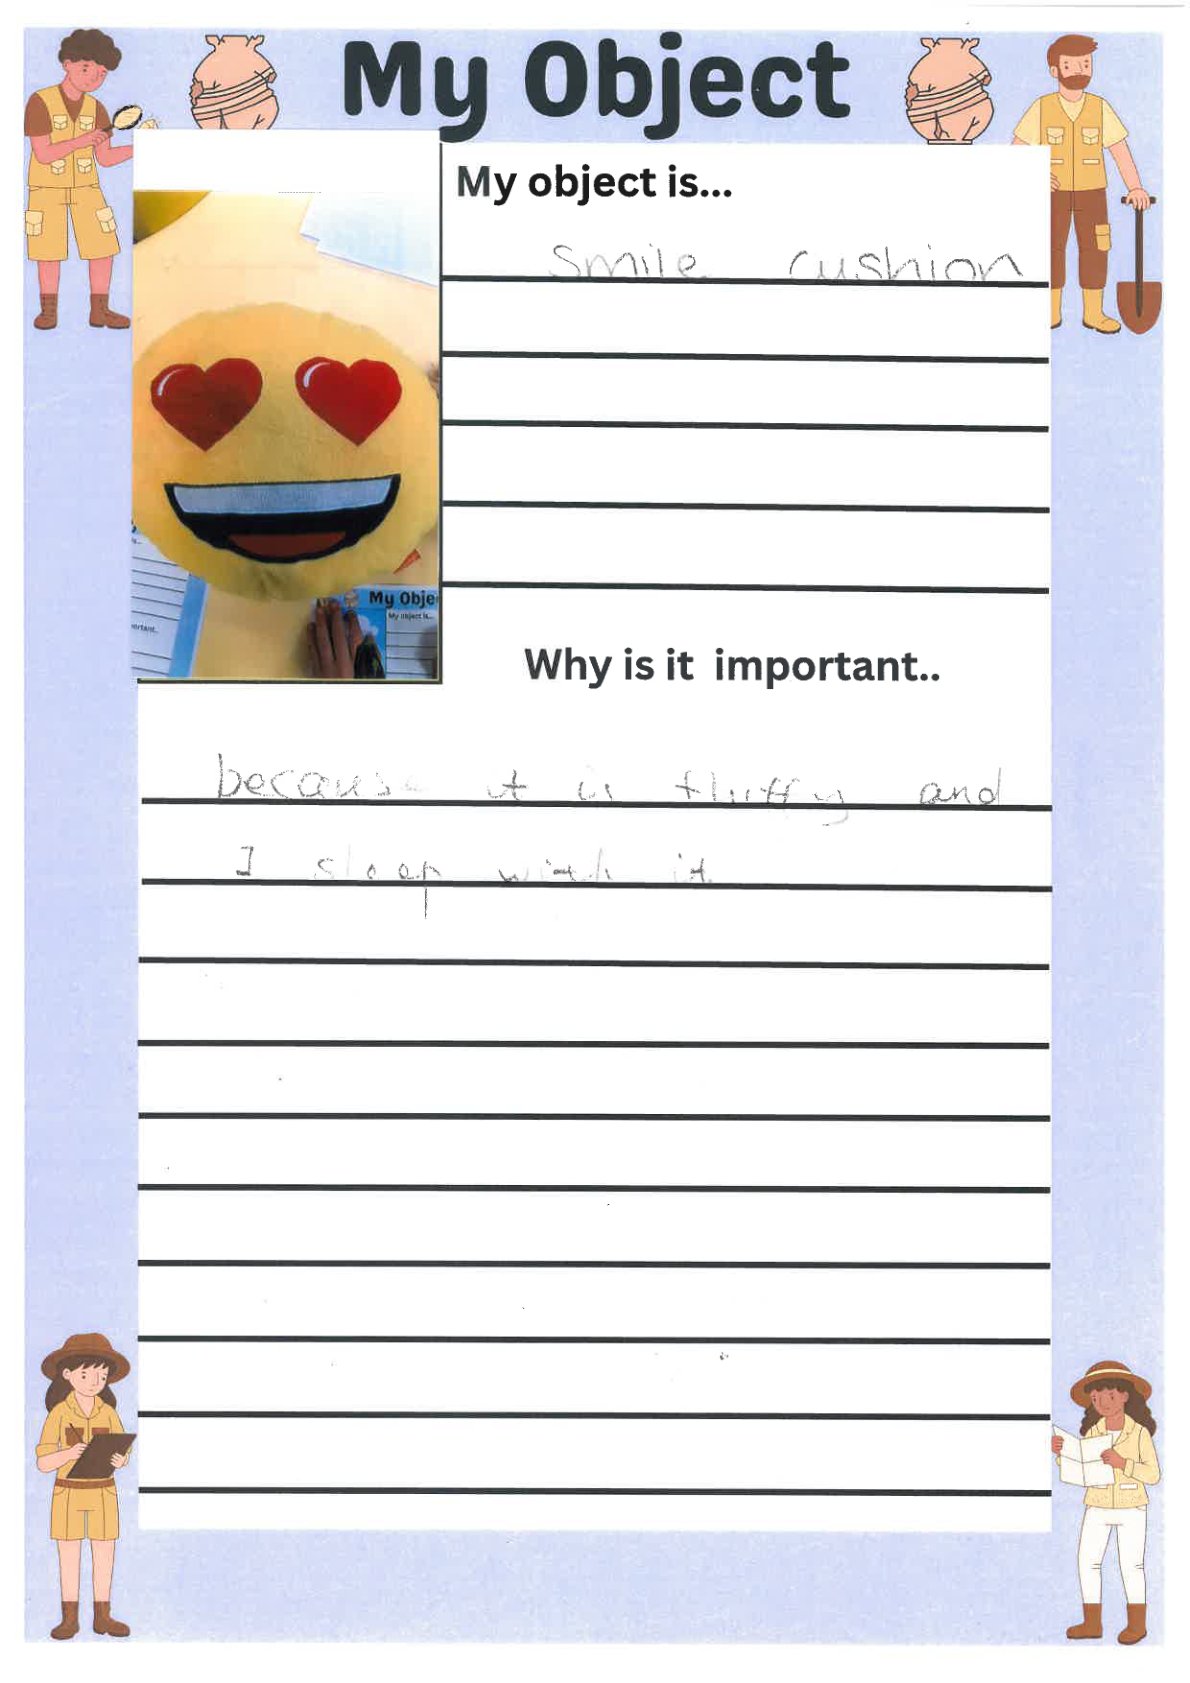 My Object
My object is...
smile cushion
My Obje
My object is...
ortant..
Why is it important..
because it is fluffy and
I sleep with it